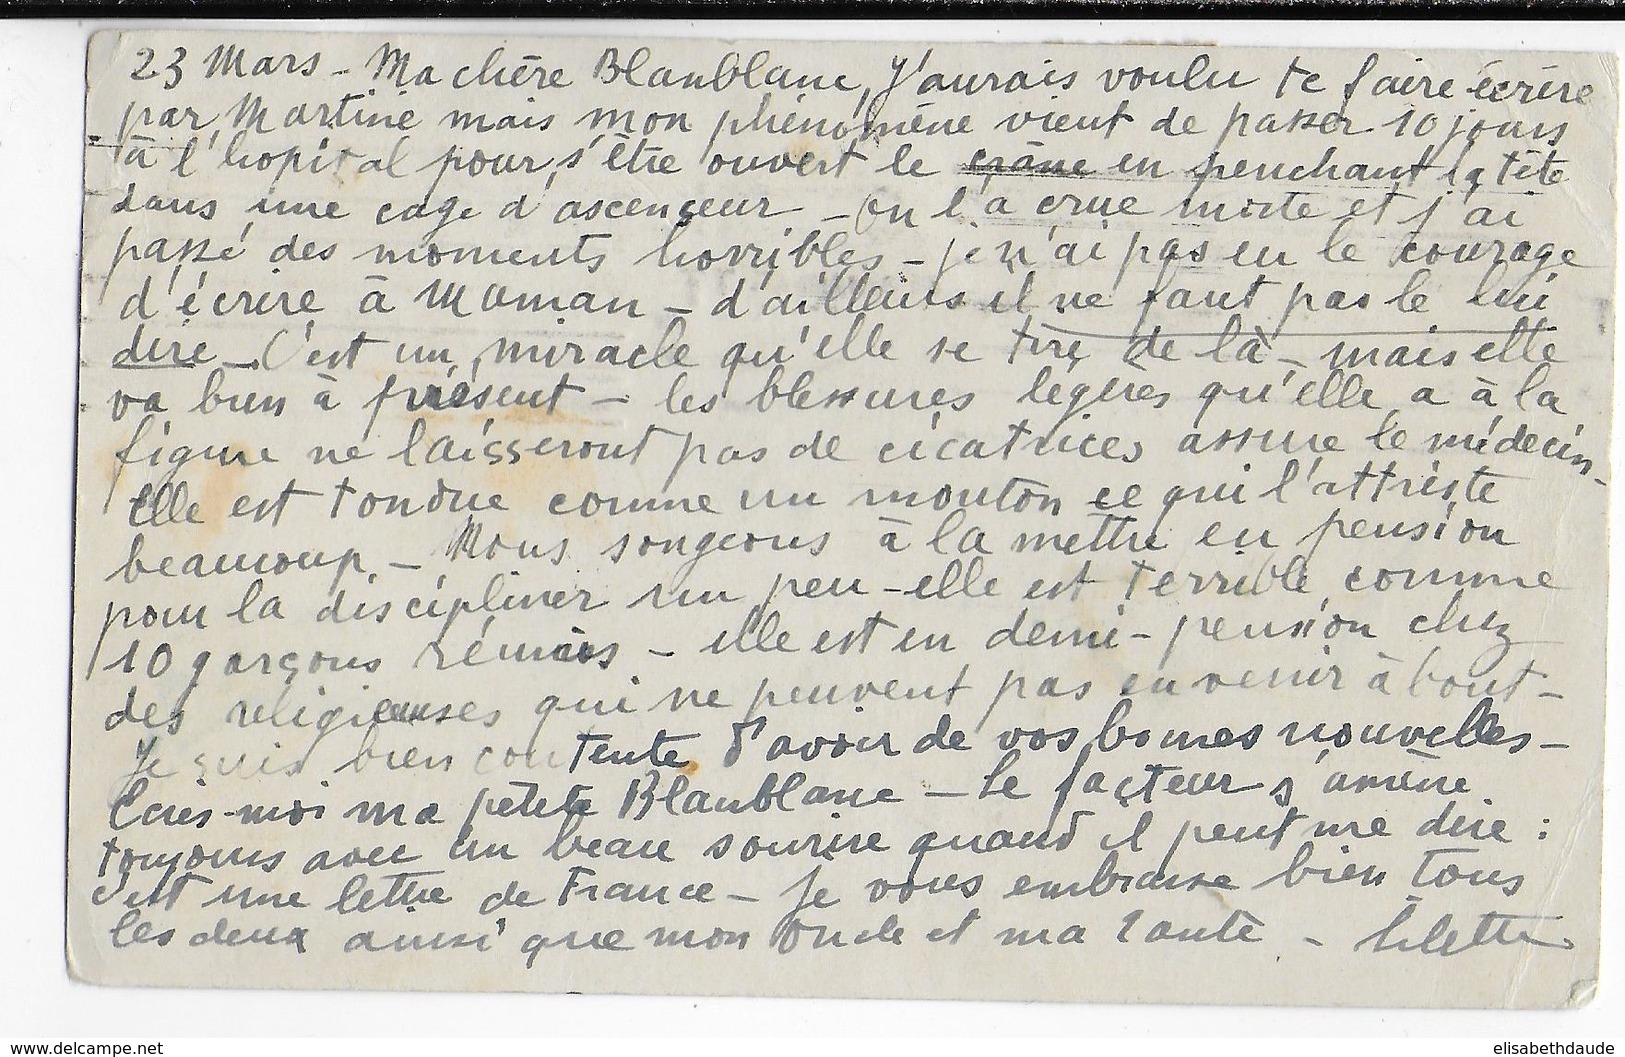 23 Mars - Ma chère Blanblanc, J'aurais voulu te faire écrire
par Martine mais mon phénomène vient de passer 10 jours
à l'hopital pour s'être ouvert le crâne en penchant la tête
dans une cage d'ascenseur - on l'a crue morte et j'ai
passé des moments horribles - je n'ai pas eu le courage
d'écrire à Maman - d'ailleurs il ne faut pas le lui
dire - C'est un miracle qu'elle se tire de là - mais elle
va bien à présent - les blessures légères qu'elle a à la
figure ne laisseront pas de cicatrices assure le médecin -
elle est tondue comme un mouton ce qui l'attriste
beaucoup - Nous songeons à la mettre en pension
pour la discipliner un peu - elle est terrible comme
10 garçons réunis - elle est en demi-pension chez
des religieuses qui ne peuvent pas en venir à bout -
Je suis bien contente d'avoir de vos bonnes nouvelles -
Ecris-moi ma petite Blanblanc - Le facteur s'amène
toujours avec un beau sourire quand il peut me dire :
c'est une lettre de France - Je vous embrasse bien tous
les deux ainsi que mon oncle et ma tante - Lilette
www.delcampe.net
elisabethdaude